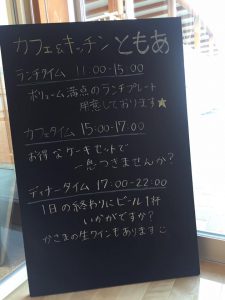 カフェ&キッチン ともあ
ランチタイム 11:00-15:00
ボリューム満点のランチプレート
用意しております★
カフェタイム 15:00-17:00
お得なケーキセットで
一息つきませんか?
ディナータイム 17:00-22:00
1日の終わりにビール1杯
いかがですか?
かさまの生ワインもあります